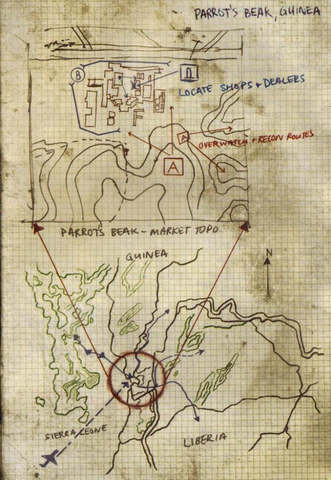 PARROT'S BEAK, GUINEA
B
Ω
LOCATE SHOPS + DEALERS
B
F
A
OVERWATCH + RECON ROUTES
A
PARROT'S BEAK - MARKET TOPO
GUINEA
N
SIERRA LEONE
LIBERIA